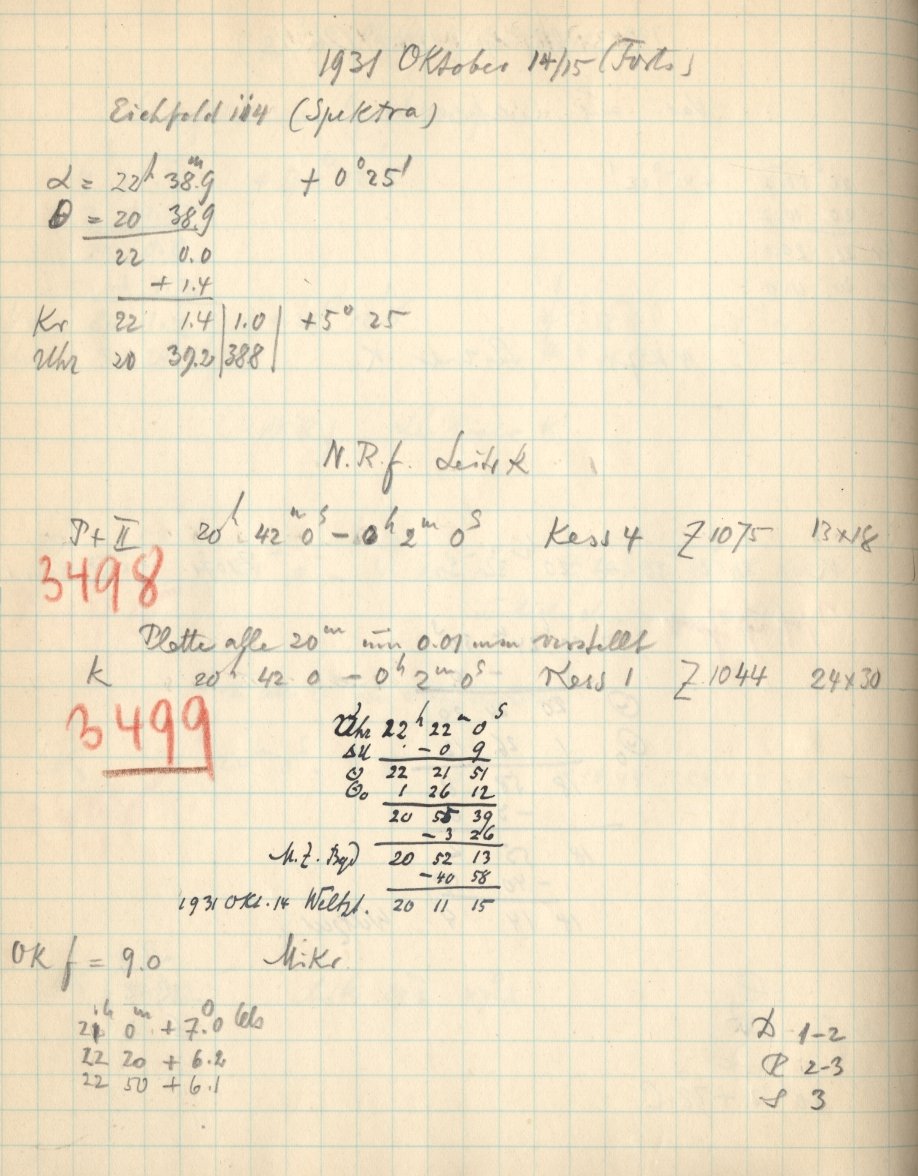 1931 Oktober 14/15 (Forts)
Eichfeld 114 (Spektra)
α = 22h 38.m9 + 0° 25'
θ = 20 38.9
22 0.0
+ 1.4
Kr 22 1.4 | 1.0 | +5° 25
Uhr 20 39.2 | 388 |
N.R.f.
P+II 20h 42m 0s – 0h 2m 0s Kass 4 Z 1075 13x18
3498
Platte alle 20m um 0.01 mm verstellt
K 20h 42 0 – 0h 2m 0s Kass 1 Z 1044 24x30
3499
Uhr 22h 22m 0s
ΔU – 0 9
Θ 22 21 51
Θ0 1 26 12
20 55 39
– 3 26
M.Z. Bgd 20 52 13
– 40 58
1931 Okt. 14 Weltzt. 20 11 15
OK f = 9.0 Mikr.
21h 0m + 7.°0 Cels
22 20 + 6.2
22 50 + 6.1
D 1-2
R 2-3
S 3